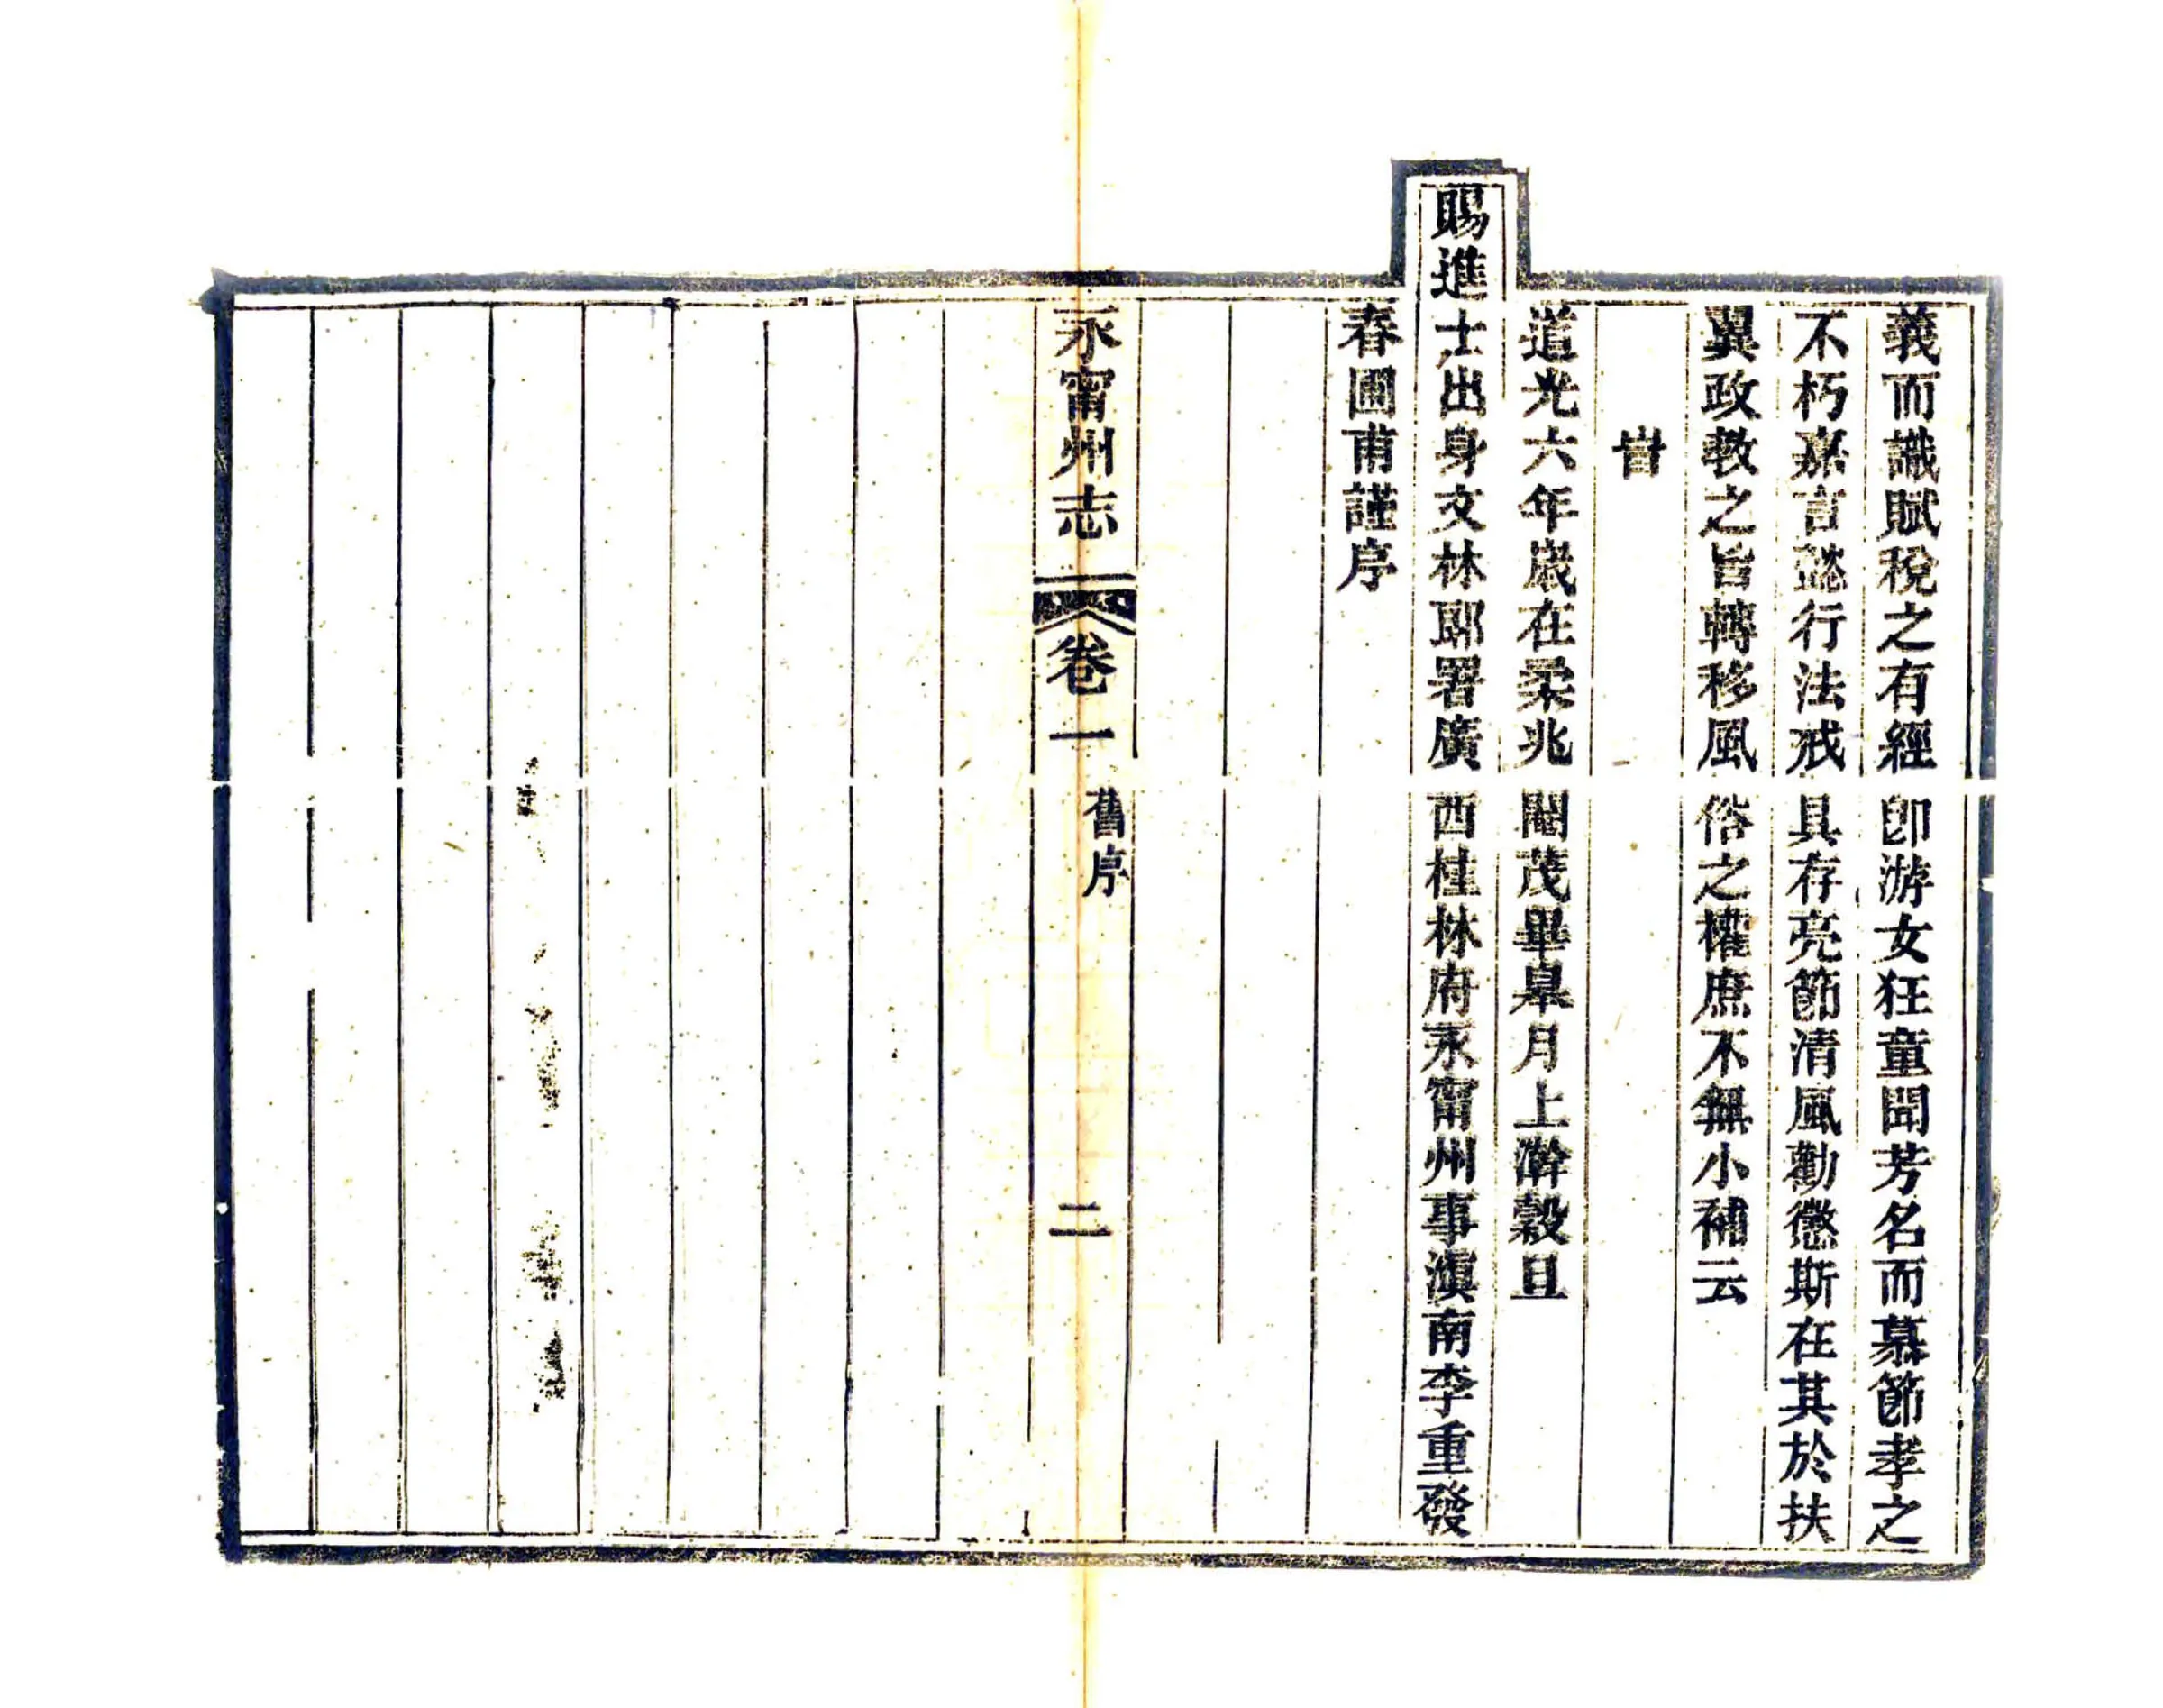 義而識賦稅之有經卽游女狂童聞芳名而慕節孝之
不朽嘉言懿行法戒具存亮節清風勸懲斯在其於扶
翼政敎之旨轉移風俗之權庶不無小補云
旹
道光六年歲在柔兆閹茂畢臯月上澣穀旦
賜進士出身文林郞署廣西桂林府永甯州事滇南李重發
春圃甫謹序
永甯州志
卷一
舊序
二